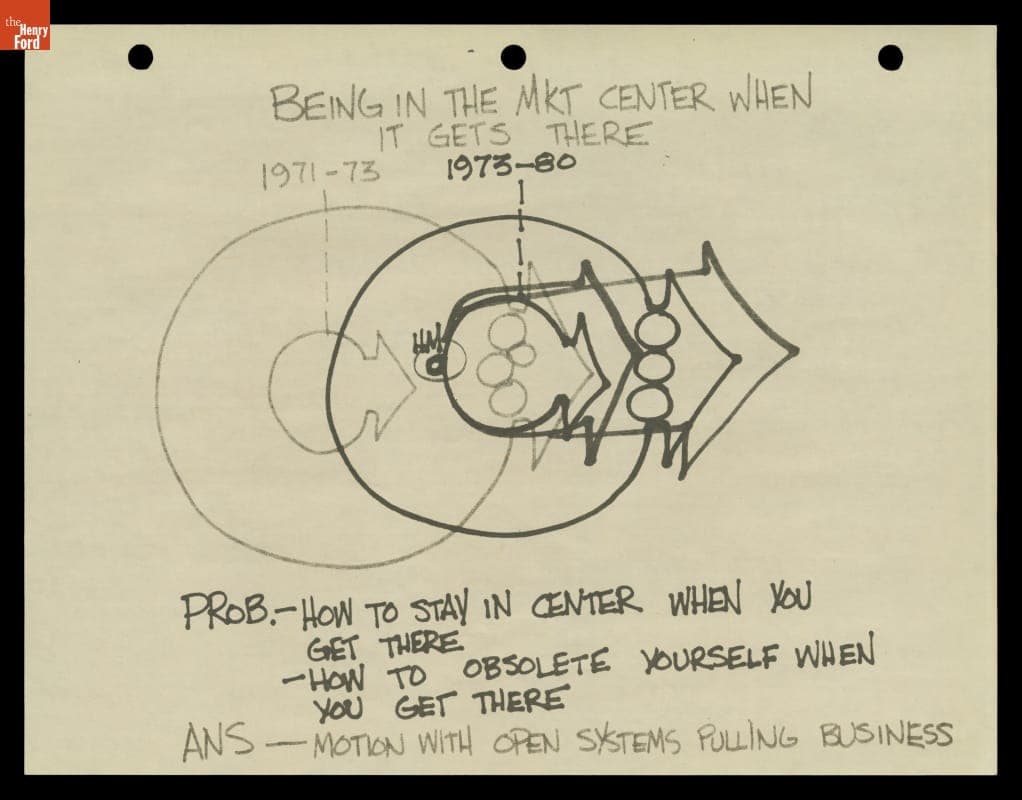 the
Henry
Ford
BEING IN THE MKT CENTER WHEN
IT GETS THERE
1971-73
1973-80
HM
PROB.- HOW TO STAY IN CENTER WHEN YOU
GET THERE
- HOW TO OBSOLETE YOURSELF WHEN
YOU GET THERE
ANS - MOTION WITH OPEN SYSTEMS PULLING BUSINESS